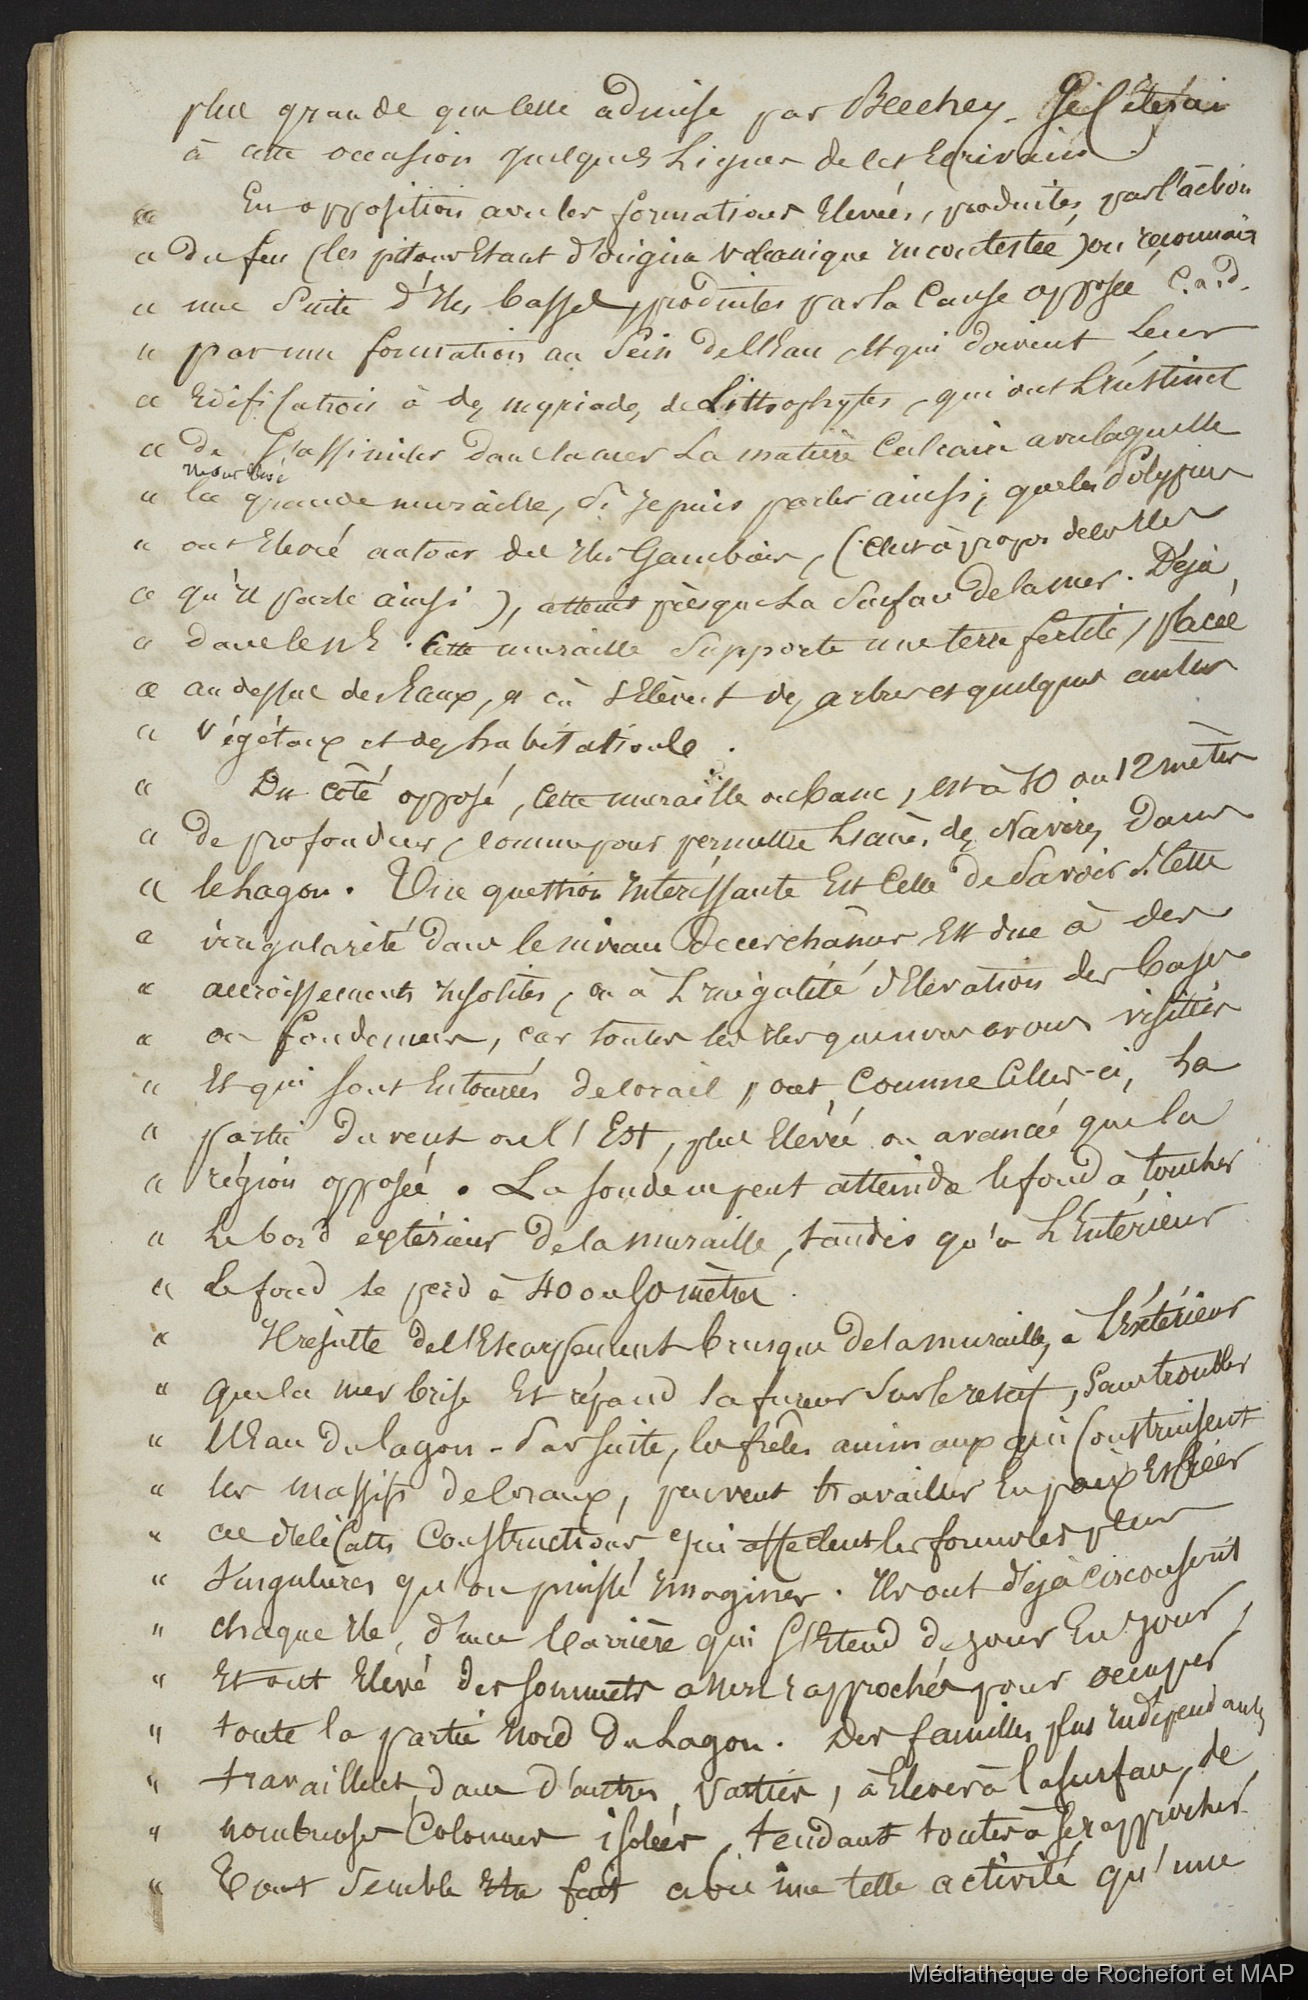 plus grande que celle admise par Beechey. Je citerai
à cette occasion quelques lignes de cet Ecrivain.
« En opposition avec les formations Elevées, produites, par l'action
« du feu (les pitons étant d'origine volcanique incontestée) on reconnaît
« une suite d'Iles basses, produites par la cause opposée c.a.d.
« par une formation au sein de l'Eau, et qui doivent leur
« Edification à des myriades de Lithophytes, qui ont L'instinct
« de s'assimiler dans la mer La matière Calcaire avec laquelle
« la grande muraille, si je puis parler ainsi, que les Polypiers
« ont Elevé autour des Iles Gambier, (c'est à propos de ces Iles
« qu'il parle ainsi), atteint presque La surface de la mer. Déjà,
« dans le N E. cette muraille supporte une terre fertile, placée
« au dessus des Eaux, et où s'Elèvent des arbres et quelques autres
« végétaux et des habitations.
« Du côté opposé, cette muraille ou banc, est à 10 ou 12 mètres
« de profondeur, comme pour permettre L'accès des Navires, Dans
« le Lagon. Une question Intéressante Est Celle de Savoir si cette
« irrégularité dans le niveau de ces chaînes Est due à des
« accroissements Insolites, ou à L'inégalité d'Elevation des bases
« ou fondemens, car toutes les Iles que nous avons visitées
« Et qui sont Entourées de corail, ont, Comme Celles-ci, La
« partie du vent ou l'Est, plus Elevée ou avancée que la
« région opposée. La sonde ne peut atteindre le fond à toucher
« Le bord extérieur de la muraille, tandis qu'à L'Intérieur
« Le fond se perd à 40 ou 50 mètres.
« Il résulte de l'Escarpement brusque de la muraille, à l'Extérieur
« que la mer brise Et répand sa fureur sur le récif, sans troubler
« l'Eau du lagon. Par suite, les frêles animaux qui Construisent
« les massifs de coraux, peuvent travailler En paix Et créer
« ces délicates Constructions qui affectent les formes les plus
« singulières qu'on puisse Imaginer. Ils ont déjà circonscrit
« chaque Ile, d'une barrière qui s'Etend de jour En jour,
« Et ont Elevé des sommets assez rapprochés pour occuper
« toute la partie Nord du Lagon. Des familles plus Indépendantes
« travaillent, dans d'autres parties, à Elever à la surface, de
« nombreuses Colonnes isolées, tendant toutes à se rapprocher.
« Tout semble Etre fait avec une telle activité qu'une
Médiathèque de Rochefort et MAP